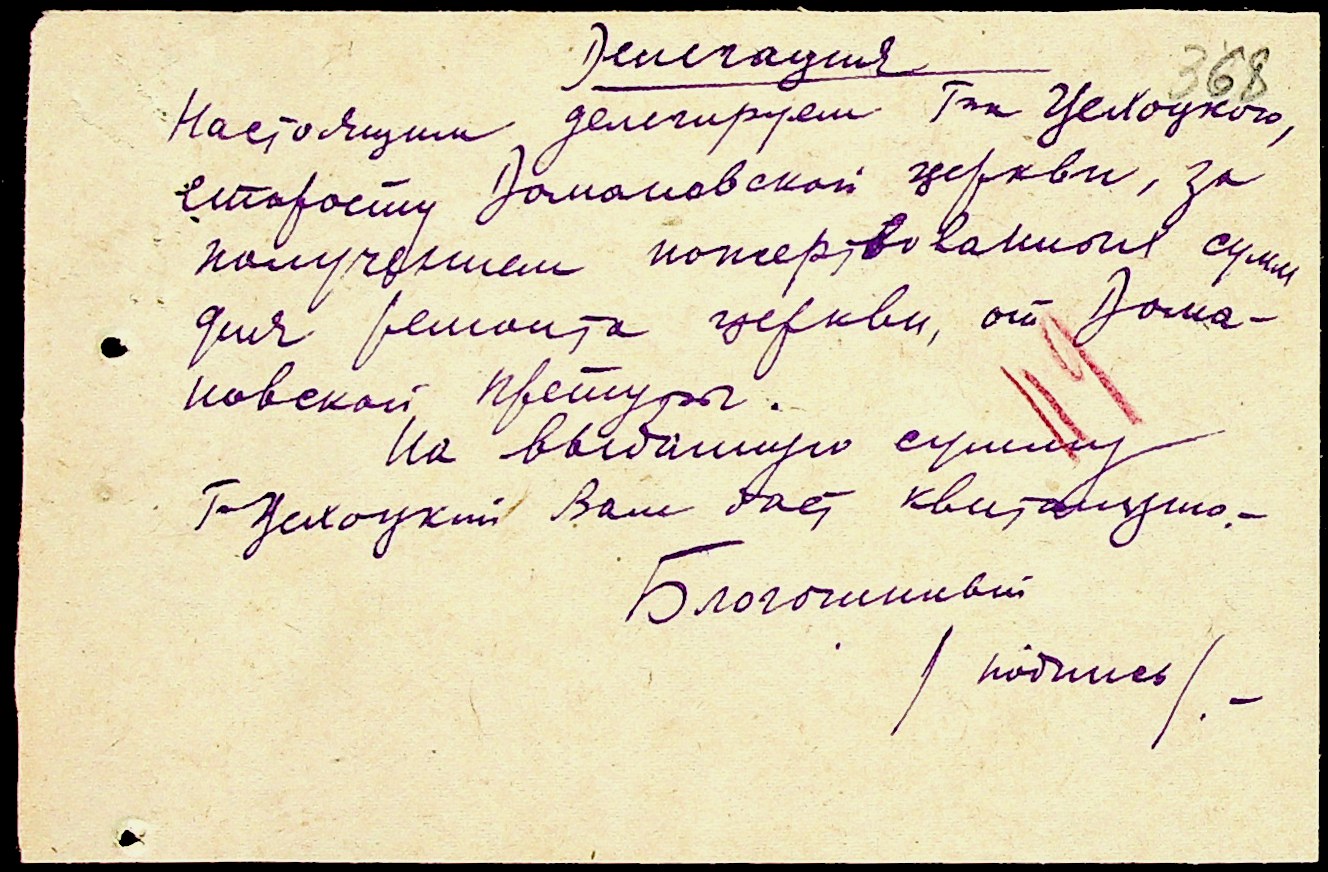 Делегация
368
Настоящим делегируем Г-на Целюцкого,
старосту Домановской церкви, за
получением пожертвованных сумм
для ремонта церкви, от Дома-
новской претуры.
На выданную сумму
Г-н Целюцкий Вам даст квитанцию.-
Благочинный
/ подпись /.-